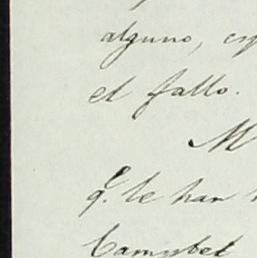 alguno,
el fallo.
M
q. le han
Campbel